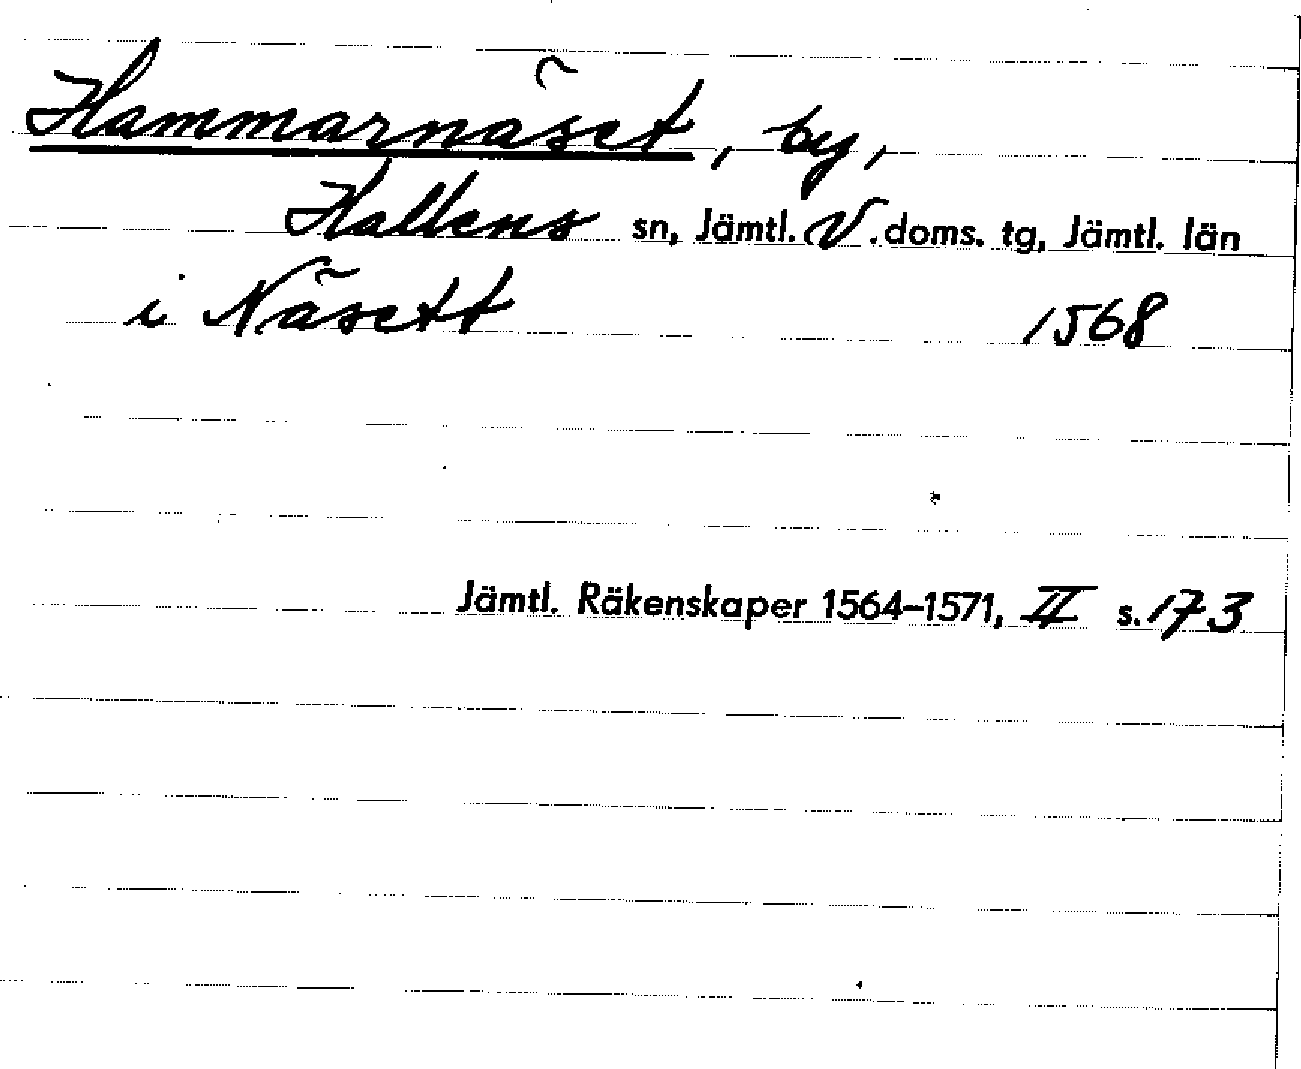 Hammarnäset, by,
Hallens sn, Jämtl. V. doms. tg, Jämtl. län
i Näsett 1568
Jämtl. Räkenskaper 1564–1571, II s. 173